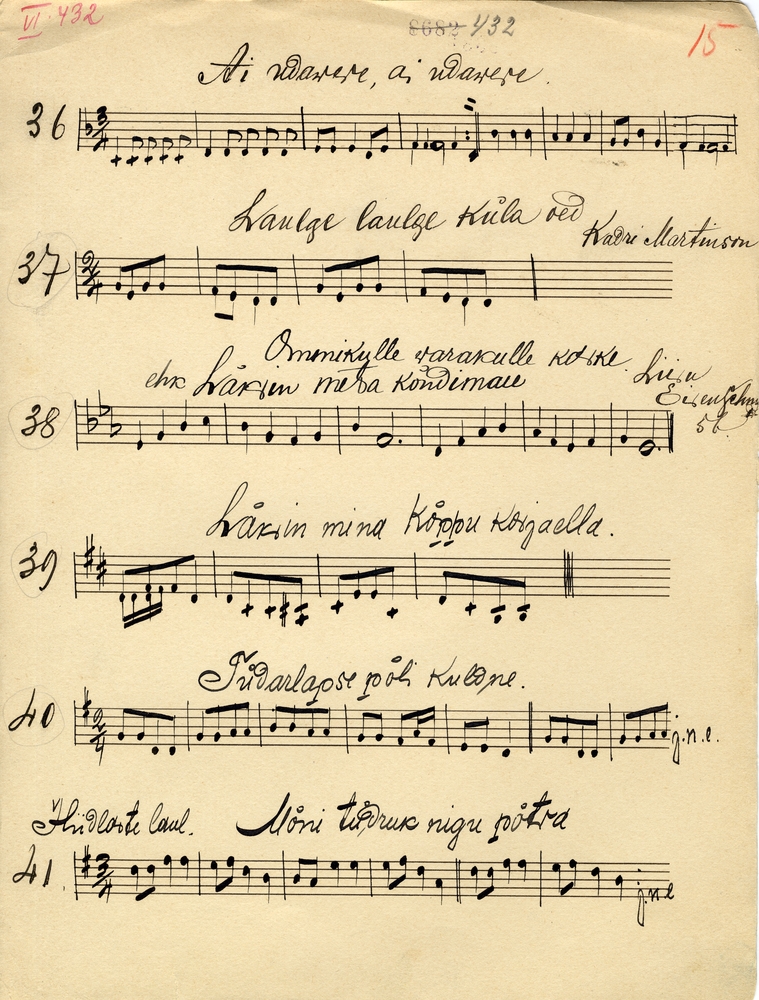 VI. 432
432
15
Ai udarere, ai udarere.
36
Laulge laulge Küla
Kadri Martinson
37
Ommikulle varakulle
ehk Läksin metsa kõndimaie
Liisu
38
Läksin mina Kõppu Karjaella.
39
Tüdarlapse põli kuldne.
40
2/4
j.n.e.
Hiidlaste laul. Mõni tüdruk nigu põtra
41.
3/4
j.n.e